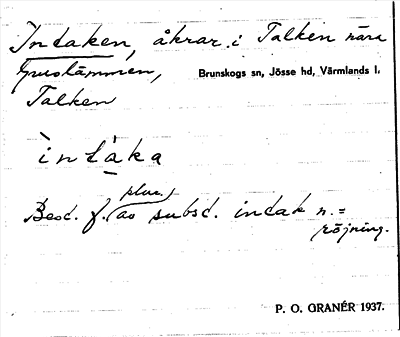 Intaken, åkrar i Talken nära
ljustämmen, Brunskogs sn, Jösse hd, Värmlands l.
Talken
ìntáka
Best. f. (plur.) av subst. intak n. =
röjning.
P. O. GRANÉR 1937.